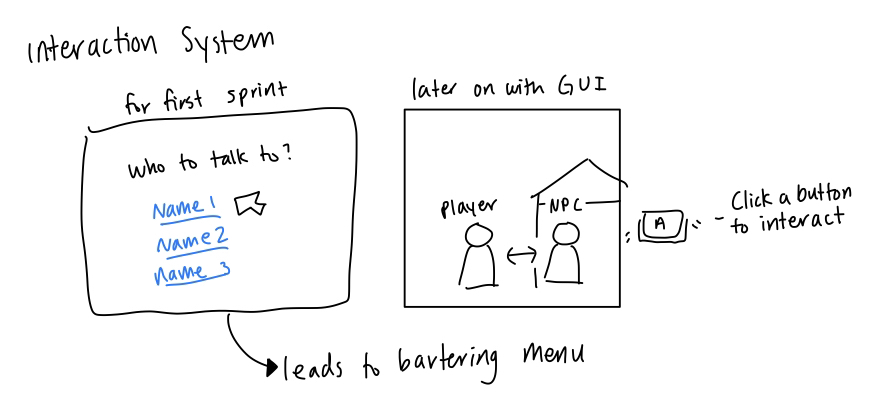 Interaction System
for first sprint
who to talk to?
Name 1
Name 2
Name 3
leads to bartering menu
later on with GUI
Player
NPC
A
- Click a button
to interact